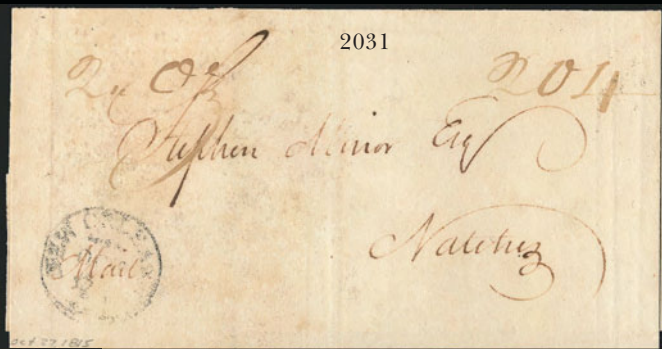 2031
2 Oz 204
Stephen Minor Esq
Natchez
NEW ORLEANS
Mail
Oct 27 1815